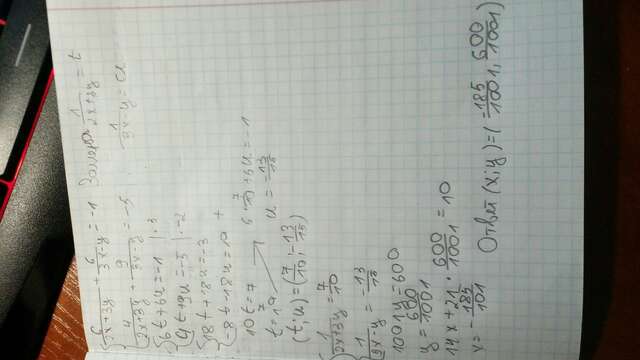 6/(2x+3y) + 6/(3x-y) = -1 Замена 1/(2x+3y) = t
4/(2x+3y) + 9/(3x-y) = -5 1/(3x-y) = u
{6t+6u=-1 |·3
{4t+9u=-5 |·-2
{18t+18u=-3
{-8t-18u=10 +
10t=7
t=7/10 6·7/10+6u=-1
u=-13/15
(t;u)=(7/10;-13/15)
{1/(2x+3y)=7/10
{1/(3x-y)=-13/15
1001y=600
y=600/1001
14x+21·600/1001=10
x=-185/1001
Ответ (x;y)=(-185/1001, 600/1001)